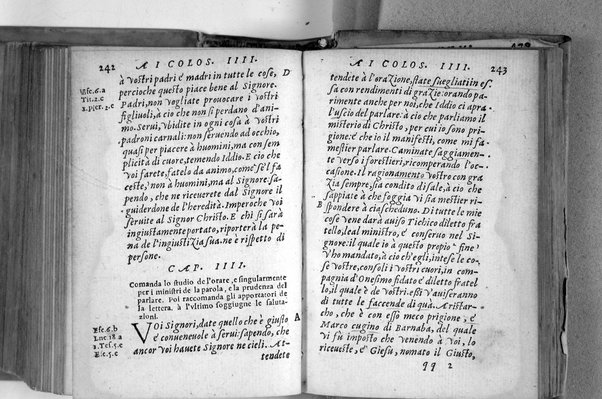 242 A I COLOS. IIII.
à vostri padri e madri in tutte le cose, D
percioche questo piace bene al Signore.
Padri, non vogliate provocare i vostri
figliuoli, à cio che non si perdano d'ani-
mo. Serui, vbidite in ogni cosa à vostri
padroni carnali: non seruendo ad occhio,
quasi per piacere à huomini, ma con sem
plicità di cuore, temendo Iddio. E cio che
voi farete, fatelo da animo, come s'el fa
ceste, non à huomini, ma al Signore. sa-
pendo, che ne riceuerete dal Signore il
guiderdone de l'heredità. Imperoche voi
seruite al Signor Christo. E chi si sarà
ingiustamente portato, riporterà la pe-
na de l'ingiustizia sua. ne è rispetto di
persone.
Efe.6.a
Tit.2.c
2.pier.2.c
CAP. IIII.
Comanda lo studio de l'orare, e singularmente
per i ministri de la parola, e la prudenza del
parlare. Poi raccomanda gli apportatori de
la lettera. à l'vltimo soggiugne le saluta-
zioni.
VOi Signori, date quello che è giusto A
è conueneuole à serui: sapendo, che
ancor voi hauete Signore ne cieli. At-
tendete
Efe.6.b
Luc.18.a
1.Tes.5.c
Efe.5.c
A I COLOS. IIII. 243
tendete à l'orazione, state suegliati in es
sa con rendimenti di grazie: orando pa-
rimente anche per noi, che Iddio ci apra
l'vscio del parlare: à cio che parliamo il
misterio di Christo, per cui io sono pri-
gione: è che io il manifesti, come mi fa
mestier parlare. Caminate saggiamen-
te verso i forestieri, ricomperando l'oc-
casione. Il ragionamento vostro con gra
zia sempre, sia condito di sale, à cio che
sappiate à che foggia vi sia mestier ri-
B spondere à ciascheduno. Di tutte le mie
cose vene darà auiso Tichico diletto fra
tello, leal ministro, è conseruo nel Si-
gnore: il quale io à questo propio fine
v'ho mandato, à cio ch'egli, intese le co-
se vostre, consoli i vostri cuori, in com-
pagnia d'Onesimo fidato è diletto fratel
lo, il quale è de vostri. essi v'auiseranno
di tutte le faccende di quà. Aristar-
cho, che è con esso meco prigione, è
Marco cugino di Barnaba, del quale
vi fù imposto che venendo à voi, lo
riceueste, è Giesù, nomato il Giusto,
qq 2